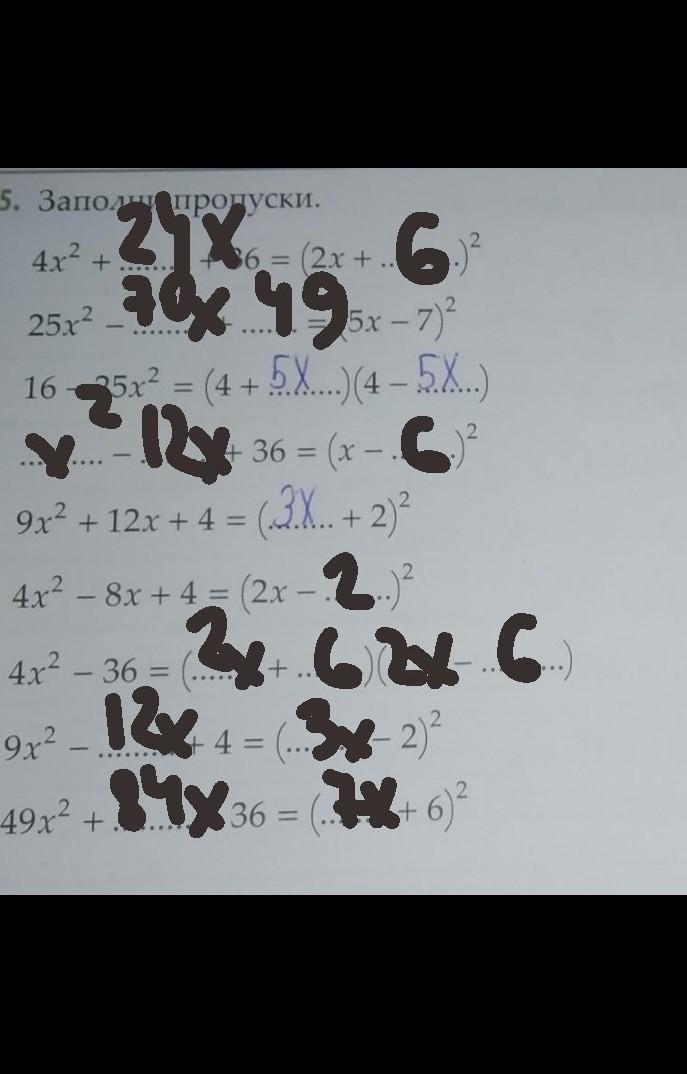 5. Заполни пропуски.
4x² + 24x + 36 = (2x + 6)²
25x² − 70x + 49 = (5x − 7)²
16 − 25x² = (4 + 5x)(4 − 5x)
x² − 12x + 36 = (x − 6)²
9x² + 12x + 4 = (3x + 2)²
4x² − 8x + 4 = (2x − 2)²
4x² − 36 = (2x + 6)(2x − 6)
9x² − 12x + 4 = (3x − 2)²
49x² + 84x 36 = (7x + 6)²